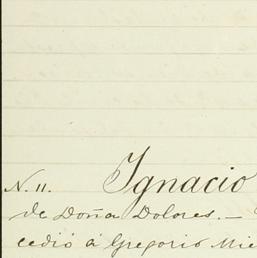 N. 11. Ignacio
de Doña Dolores. —
cedió á Gregorio Mie